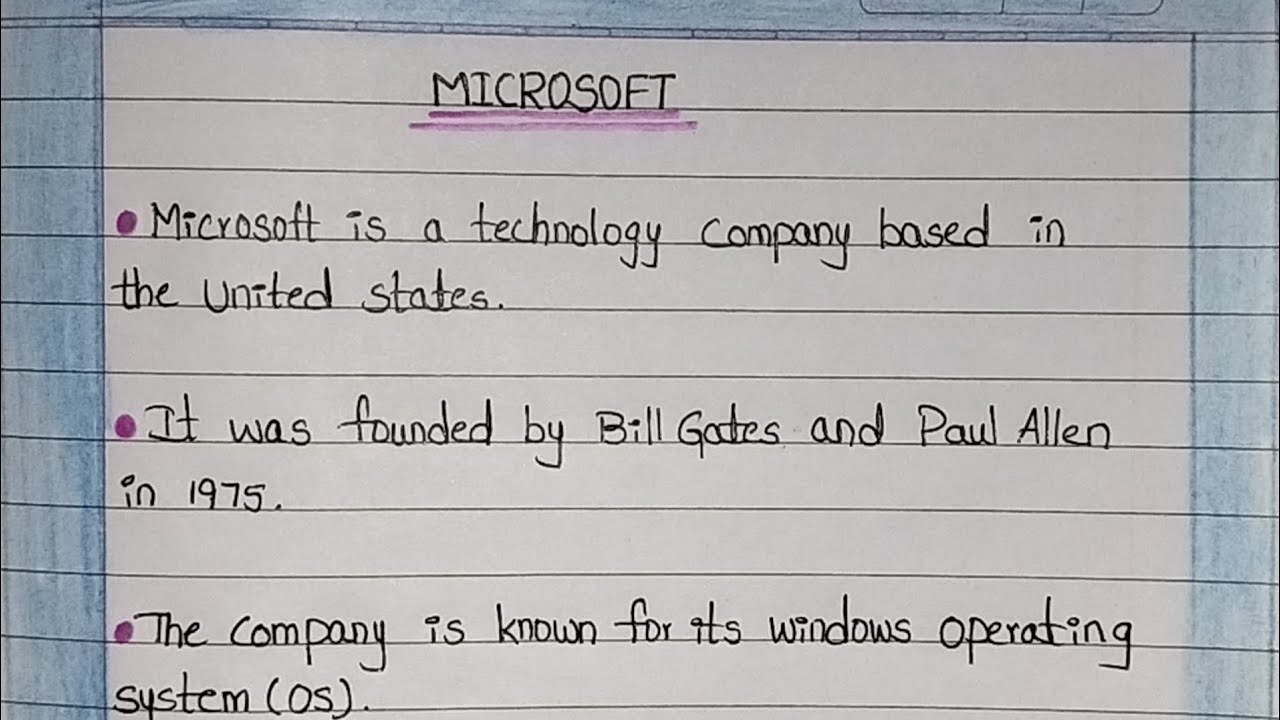 MICROSOFT
• Microsoft is a technology company based in
the United States.
• It was founded by Bill Gates and Paul Allen
in 1975.
• The company is known for its windows operating
system (OS).